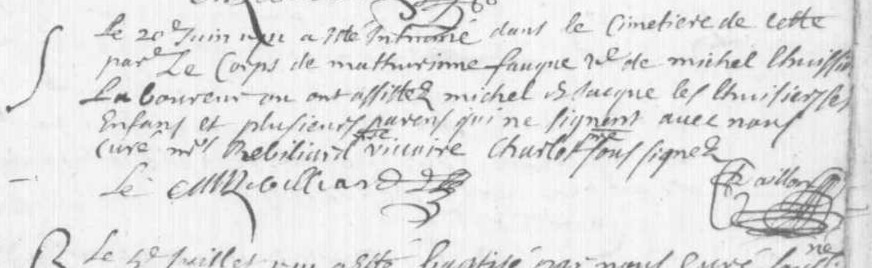 Le 20e Juin 1711 a esté Intrumé dans le Cimetiere de cette
parse Le Corps de mathurinne fauque Ve de michel lhuissier
Laboureur ou ont assistez michel et Jacque les lhuisiers ses
Enfans et plusieurs parens qui ne signent avec nous
curé Rebiliard vicaire Charlot soussignez
Le Rebilliard
Le Juillet a esté baptisé par nous curé